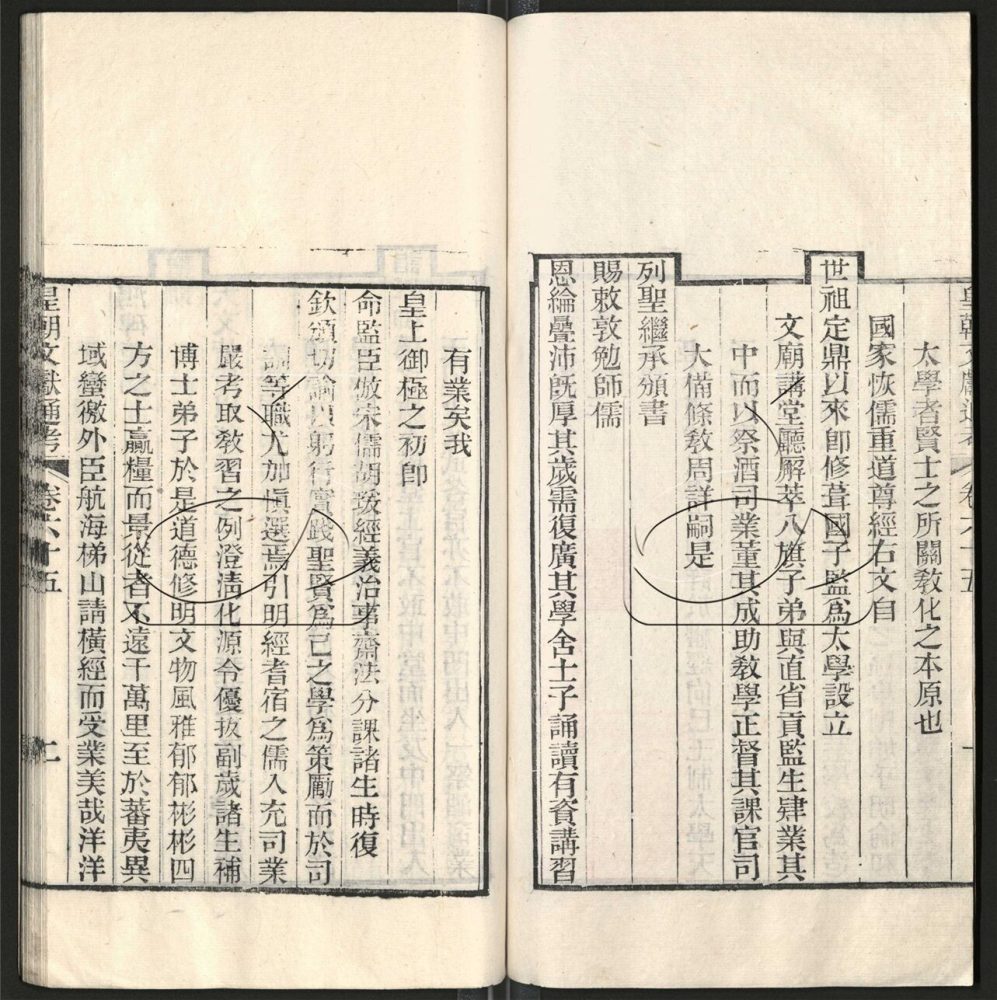 皇朝文獻通考 卷六十五
太學者賢士之所關敎化之本原也
國家恢儒重道尊經右文自
世祖定鼎以來卽修葺國子監爲太學設立
文廟講堂廳廨萃八旗子弟與直省貢監生肄業其
中而以祭酒司業董其成助敎學正督其課官司
大備條敎周詳嗣是
列聖繼承頒書
賜敕敦勉師儒
恩綸疊沛旣厚其歲需復廣其學舍士子誦讀有資講習
有業矣我
皇上御極之初卽
命監臣倣宋儒胡瑗經義治事齋法分課諸生時復
欽頒切諭以躬行實踐聖賢爲己之學爲策勵而於司
訓等職尤加愼選焉引明經耆宿之儒入充司業
嚴考取敎習之例澄淸化源令優拔副歲諸生補
博士弟子於是道德修明文物風雅郁郁彬彬四
方之士贏糧而景從者不遠千萬里至於蕃夷異
域蠻徼外臣航海梯山請橫經而受業美哉洋洋
皇朝文獻通考 卷六十五 二